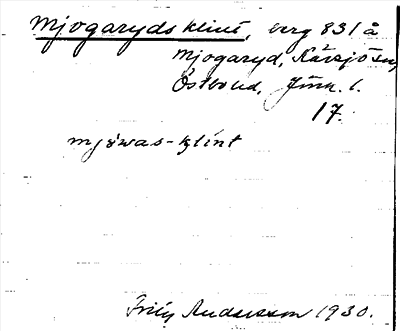 Mjogaryds klint, berg 831 å
Mjogaryd, Kärsjö sn,
Östbo hd, Jönk. l.
17.
mjöwas-klint
Andersson 1930.